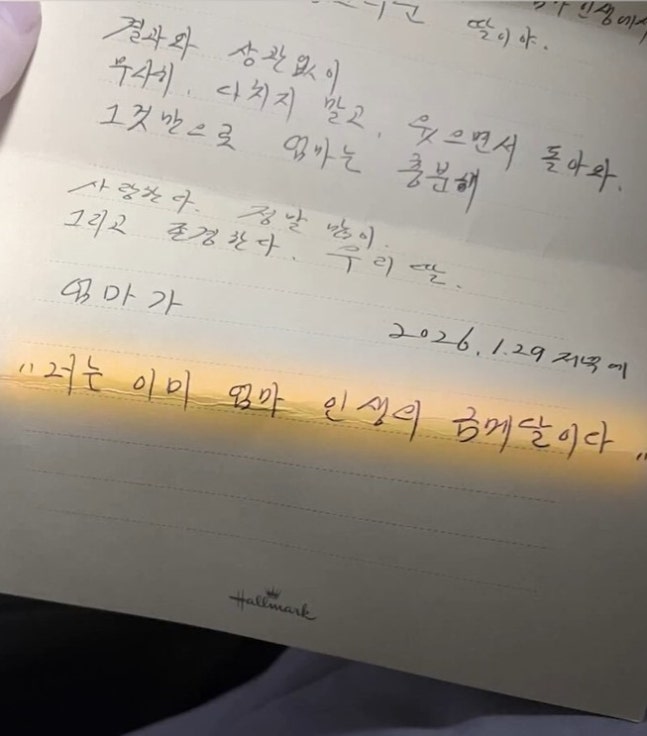 인생에서
딸이야.
결과와 상관없이
무사히, 다치지 말고, 웃으면서 돌아와.
그것만으로 엄마는 충분해
사랑한다. 정말 많이.
그리고 존경한다. 우리 딸.
엄마가
2026.1.29 저녁에
"너는 이미 엄마 인생의 금메달이다"
Hallmark